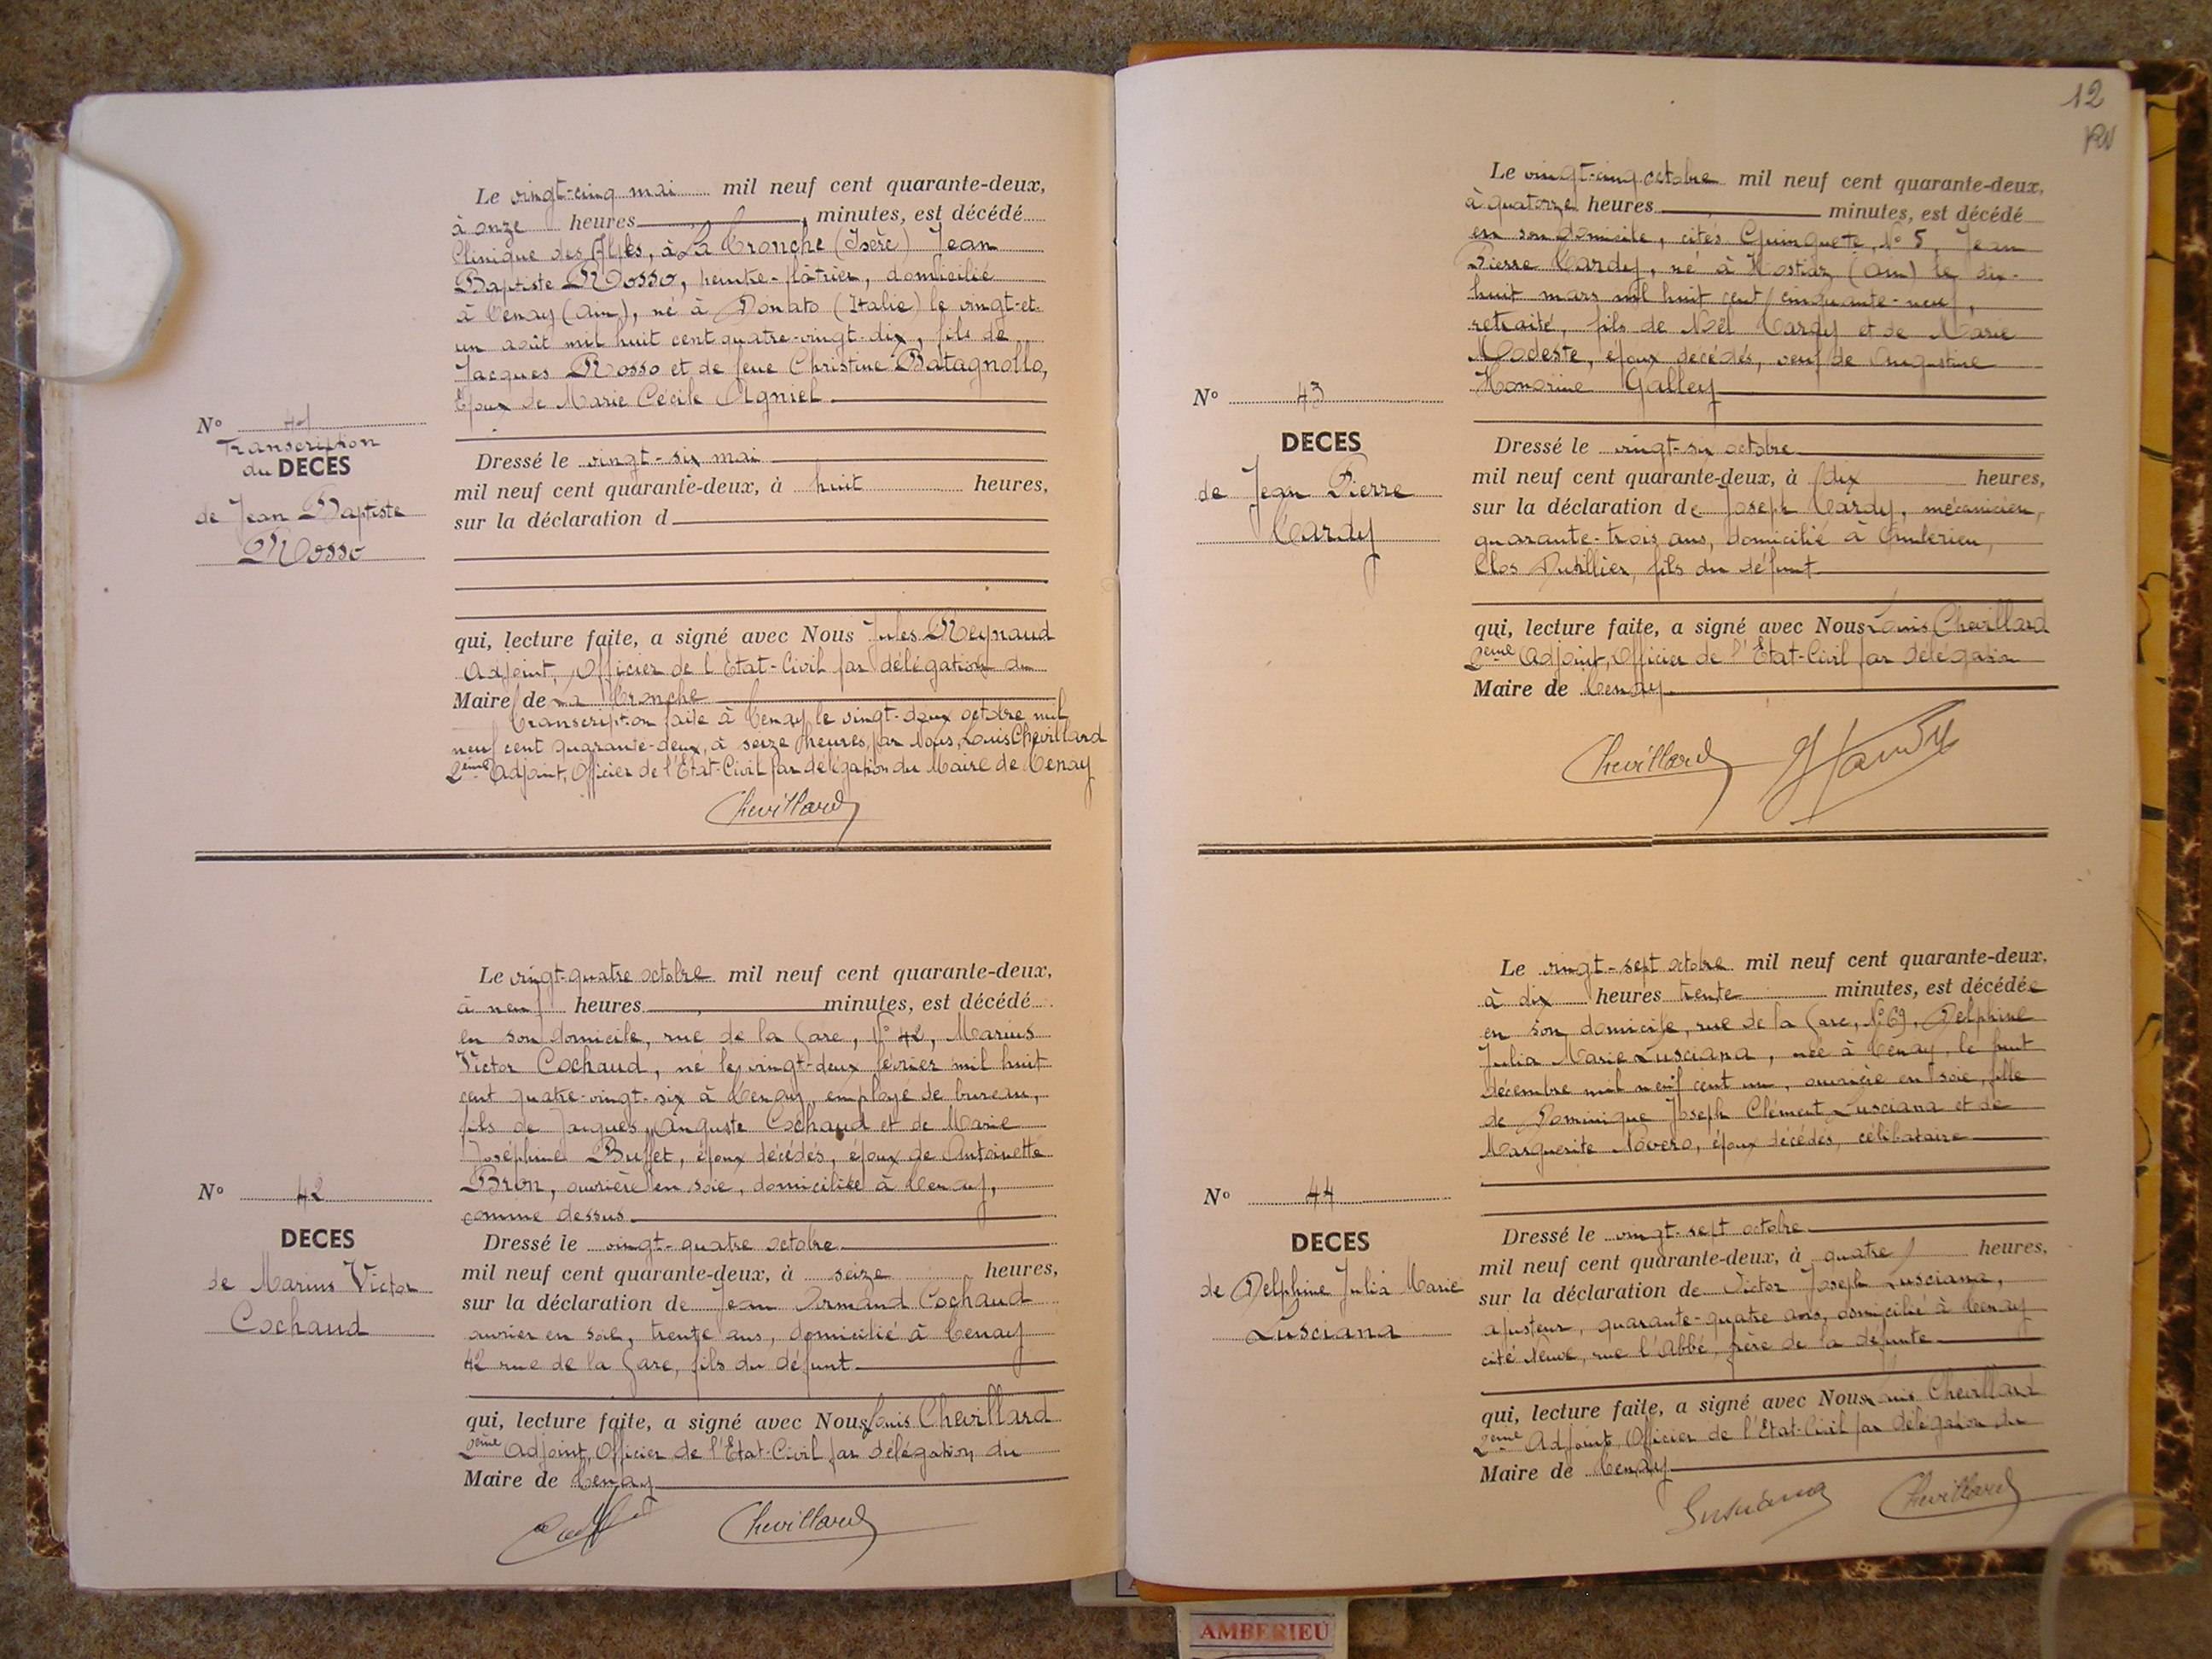 Le vingt-cinq mai mil neuf cent quarante-deux,
à onze heures, minutes, est décédé
Clinique des Alpes, à La Tronche (Isère) Jean
Baptiste Rosso, peintre-plâtrier, domicilié
à Tenay (Ain), né à Donato (Italie) le vingt-et-
un août mil huit cent quatre-vingt-dix, fils de
Jacques Rosso et de feue Christine Batagnollo,
Epoux de Marie Cécile Agniel
N° 41
Transcription
du DECES
de Jean Baptiste
Rosso
Dressé le vingt-six mai
mil neuf cent quarante-deux, à huit heures,
sur la déclaration d
qui, lecture faite, a signé avec Nous Jules Reynaud
Adjoint, Officier de l'Etat-Civil par délégation du
Maire de La Tronche
Transcription faite à Tenay le vingt-deux octobre mil
neuf cent quarante-deux, à seize heures, par Nous, Louis Chevillard
2ème Adjoint, Officier de l'Etat-Civil par délégation du Maire de Tenay
Chevillard
Le vingt-quatre octobre mil neuf cent quarante-deux,
à neuf heures, minutes, est décédé
en son domicile, rue de la Gare, N° 42, Marius
Victor Cochaud, né le vingt-deux février mil huit
cent quatre-vingt-six à Tenay, employé de bureau,
fils de Jacques Auguste Cochaud et de Marie
Joséphine Buffet, époux décédés, époux de Antoinette
Bron, ouvrière en soie, domiciliée à Tenay,
comme dessus.
N° 42
DECES
de Marius Victor
Cochaud
Dressé le vingt-quatre octobre
mil neuf cent quarante-deux, à seize heures,
sur la déclaration de Jean Armand Cochaud
ouvrier en soie, trente ans, domicilié à Tenay
42 rue de la Gare, fils du défunt
qui, lecture faite, a signé avec Nous Louis Chevillard
2ème Adjoint, Officier de l'Etat-Civil par délégation du
Maire de Tenay
Chevillard
12
Le vingt-cinq octobre mil neuf cent quarante-deux,
à quatorze heures, minutes, est décédé
en son domicile, cités Guinguete, N° 5, Jean
Pierre Tardy, né à Hostiaz (Ain) le dix-
huit mars mil huit cent cinquante-neuf,
retraité, fils de Noël Tardy et de Marie
Modeste, époux décédés, veuf de Augustine
Honorine Galley
N° 43
DECES
de Jean Pierre
Tardy
Dressé le vingt-six octobre
mil neuf cent quarante-deux, à dix heures,
sur la déclaration de Joseph Tardy, mécanicien,
quarante-trois ans, domicilié à Ambérieu,
Clos Dutillier, fils du défunt
qui, lecture faite, a signé avec Nous Louis Chevillard
2ème Adjoint, Officier de l'Etat-Civil par délégation
Maire de Tenay
Chevillard JTardy
Le vingt-sept octobre mil neuf cent quarante-deux,
à dix heures trente minutes, est décédée
en son domicile, rue de la Gare, N° 69, Delphine
Julia Marie Lusciana, née à Tenay, le huit
décembre mil neuf cent un, ouvrière en soie, fille
de Dominique Joseph Clément Lusciana et de
Marguerite Novero, époux décédés, célibataire
N° 44
DECES
de Delphine Julia Marie
Lusciana
Dressé le vingt-sept octobre
mil neuf cent quarante-deux, à quatre heures,
sur la déclaration de Victor Joseph Lusciana,
ajusteur, quarante-quatre ans, domicilié à Tenay
cité Neuve, rue l'Abbé, frère de la défunte
qui, lecture faite, a signé avec Nous Louis Chevillard
2ème Adjoint, Officier de l'Etat-Civil par délégation du
Maire de Tenay
Lusciana Chevillard
AMBERIEU